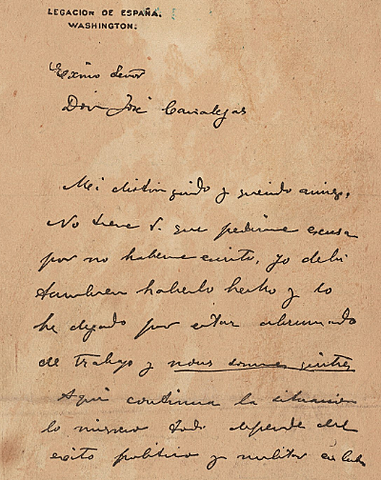 LEGACIÓN DE ESPAÑA.
WASHINGTON.
Exmo Señor
Don José Canalejas
Mi distinguido y querido amigo:
No tiene V. que pedirme excusa
por no haberme escrito, yo debí
tambien haberlo hecho y lo
he dejado por estar abrumado
de trabajo y nous sommes quittes
Aqui continua la situacion
lo mismo todo depende del
exito politico y militar en Cuba